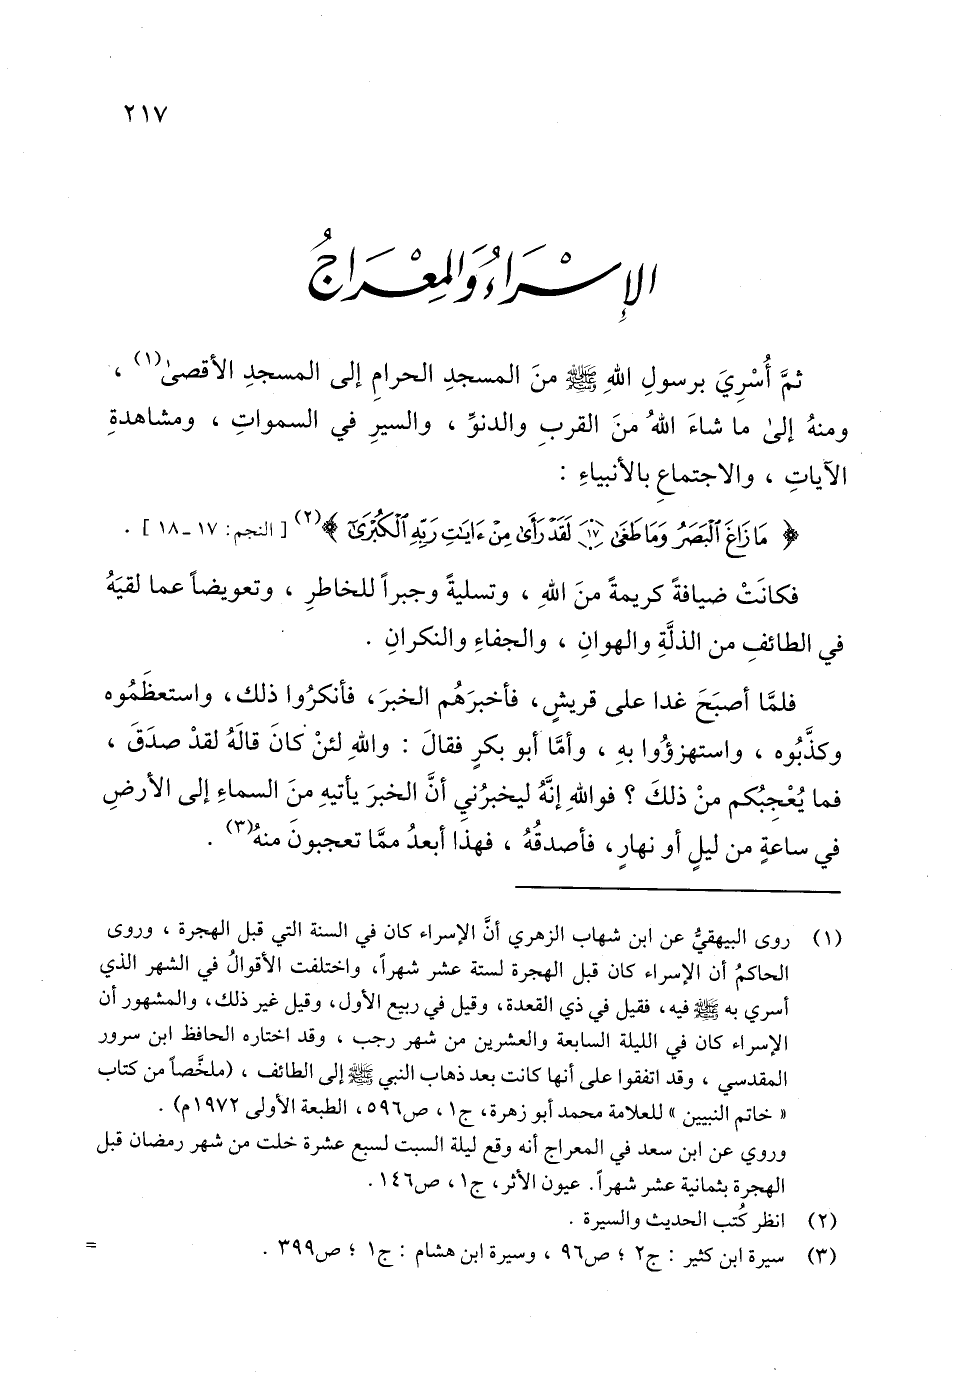 ٢١٧
الإسْرَاءُ وَالمِعْرَاجُ
ثمَّ أُسْرِيَ برسولِ اللهِ ﷺ منَ المسجدِ الحرامِ إلى المسجدِ الأقصىٰ(١) ،
ومنهُ إلىٰ ما شاءَ اللهُ منَ القربِ والدنوِّ ، والسيرِ في السمواتِ ، ومشاهدةِ
الآياتِ ، والاجتماعِ بالأنبياءِ :
﴿ مَا زَاغَ ٱلْبَصَرُ وَمَا طَغَىٰ ﴿١٧﴾ لَقَدْ رَأَىٰ مِنْ ءَايَٰتِ رَبِّهِ ٱلْكُبْرَىٰٓ ﴾(٢) [ النجم: ١٧ ـ ١٨ ] .
فكانَتْ ضيافةً كريمةً منَ اللهِ ، وتسليةً وجبراً للخاطرِ ، وتعويضاً عما لقيَهُ
في الطائفِ من الذلَّةِ والهوانِ ، والجفاءِ والنكرانِ .
فلمَّا أصبَحَ غدا على قريشٍ، فأخبرَهُم الخبرَ، فأنكرُوا ذلك، واستعظَمُوه
وكذَّبُوه ، واستهزؤُوا بهِ ، وأمَّا أبو بكرٍ فقالَ : واللهِ لئنْ كانَ قالَهُ لقدْ صدَقَ ،
فما يُعْجِبُكم منْ ذلكَ ؟ فواللهِ إنَّهُ ليخبرُني أنَّ الخبرَ يأتيهِ منَ السماءِ إلى الأرضِ
في ساعةٍ من ليلٍ أو نهارٍ، فأصدقُهُ ، فهذا أبعدُ ممَّا تعجبونَ منهُ(٣) .
(١) روى البيهقيُّ عن ابن شهاب الزهري أنَّ الإسراء كان في السنة التي قبل الهجرة ، وروى
الحاكمُ أن الإسراء كان قبل الهجرة لستة عشر شهراً، واختلفت الأقوالُ في الشهر الذي
أسري به ﷺ فيه، فقيل في ذي القعدة، وقيل في ربيع الأول، وقيل غير ذلك، والمشهور أن
الإسراء كان في الليلة السابعة والعشرين من شهر رجب ، وقد اختاره الحافظ ابن سرور
المقدسي ، وقد اتفقوا على أنها كانت بعد ذهاب النبي ﷺ إلى الطائف ، (ملخَّصاً من كتاب
« خاتم النبيين » للعلامة محمد أبو زهرة، ج١، ص٥٩٦، الطبعة الأولى ١٩٧٢م) .
وروي عن ابن سعد في المعراج أنه وقع ليلة السبت لسبع عشرة خلت من شهر رمضان قبل
الهجرة بثمانية عشر شهراً. عيون الأثر، ج١، ص١٤٦.
(٢) انظر كُتب الحديث والسيرة .
(٣) سيرة ابن كثير : ج٢ ؛ ص٩٦ ، وسيرة ابن هشام : ج١ ؛ ص٣٩٩ .
=